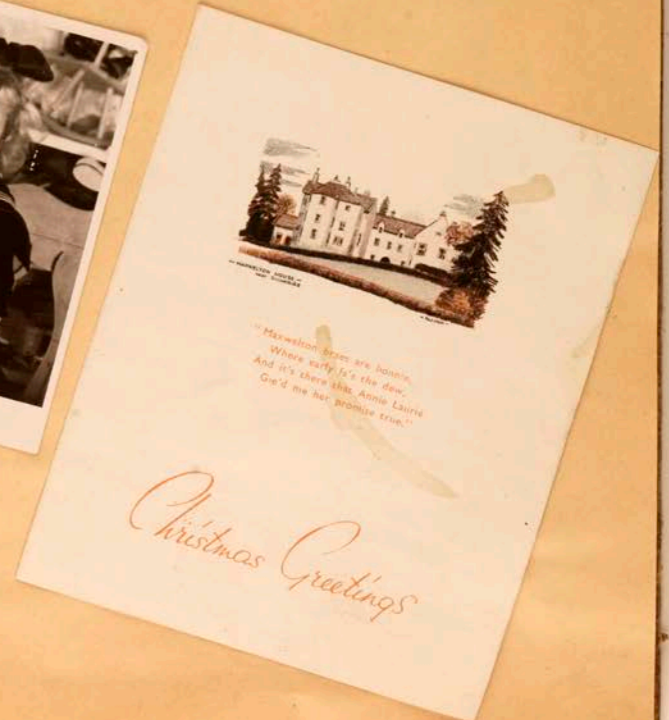 — MAXWELTON HOUSE —
"Maxwelton braes are bonnie,
Where early fa's the dew,
And it's there that Annie Laurie
Gie'd me her promise true."
Christmas Greetings